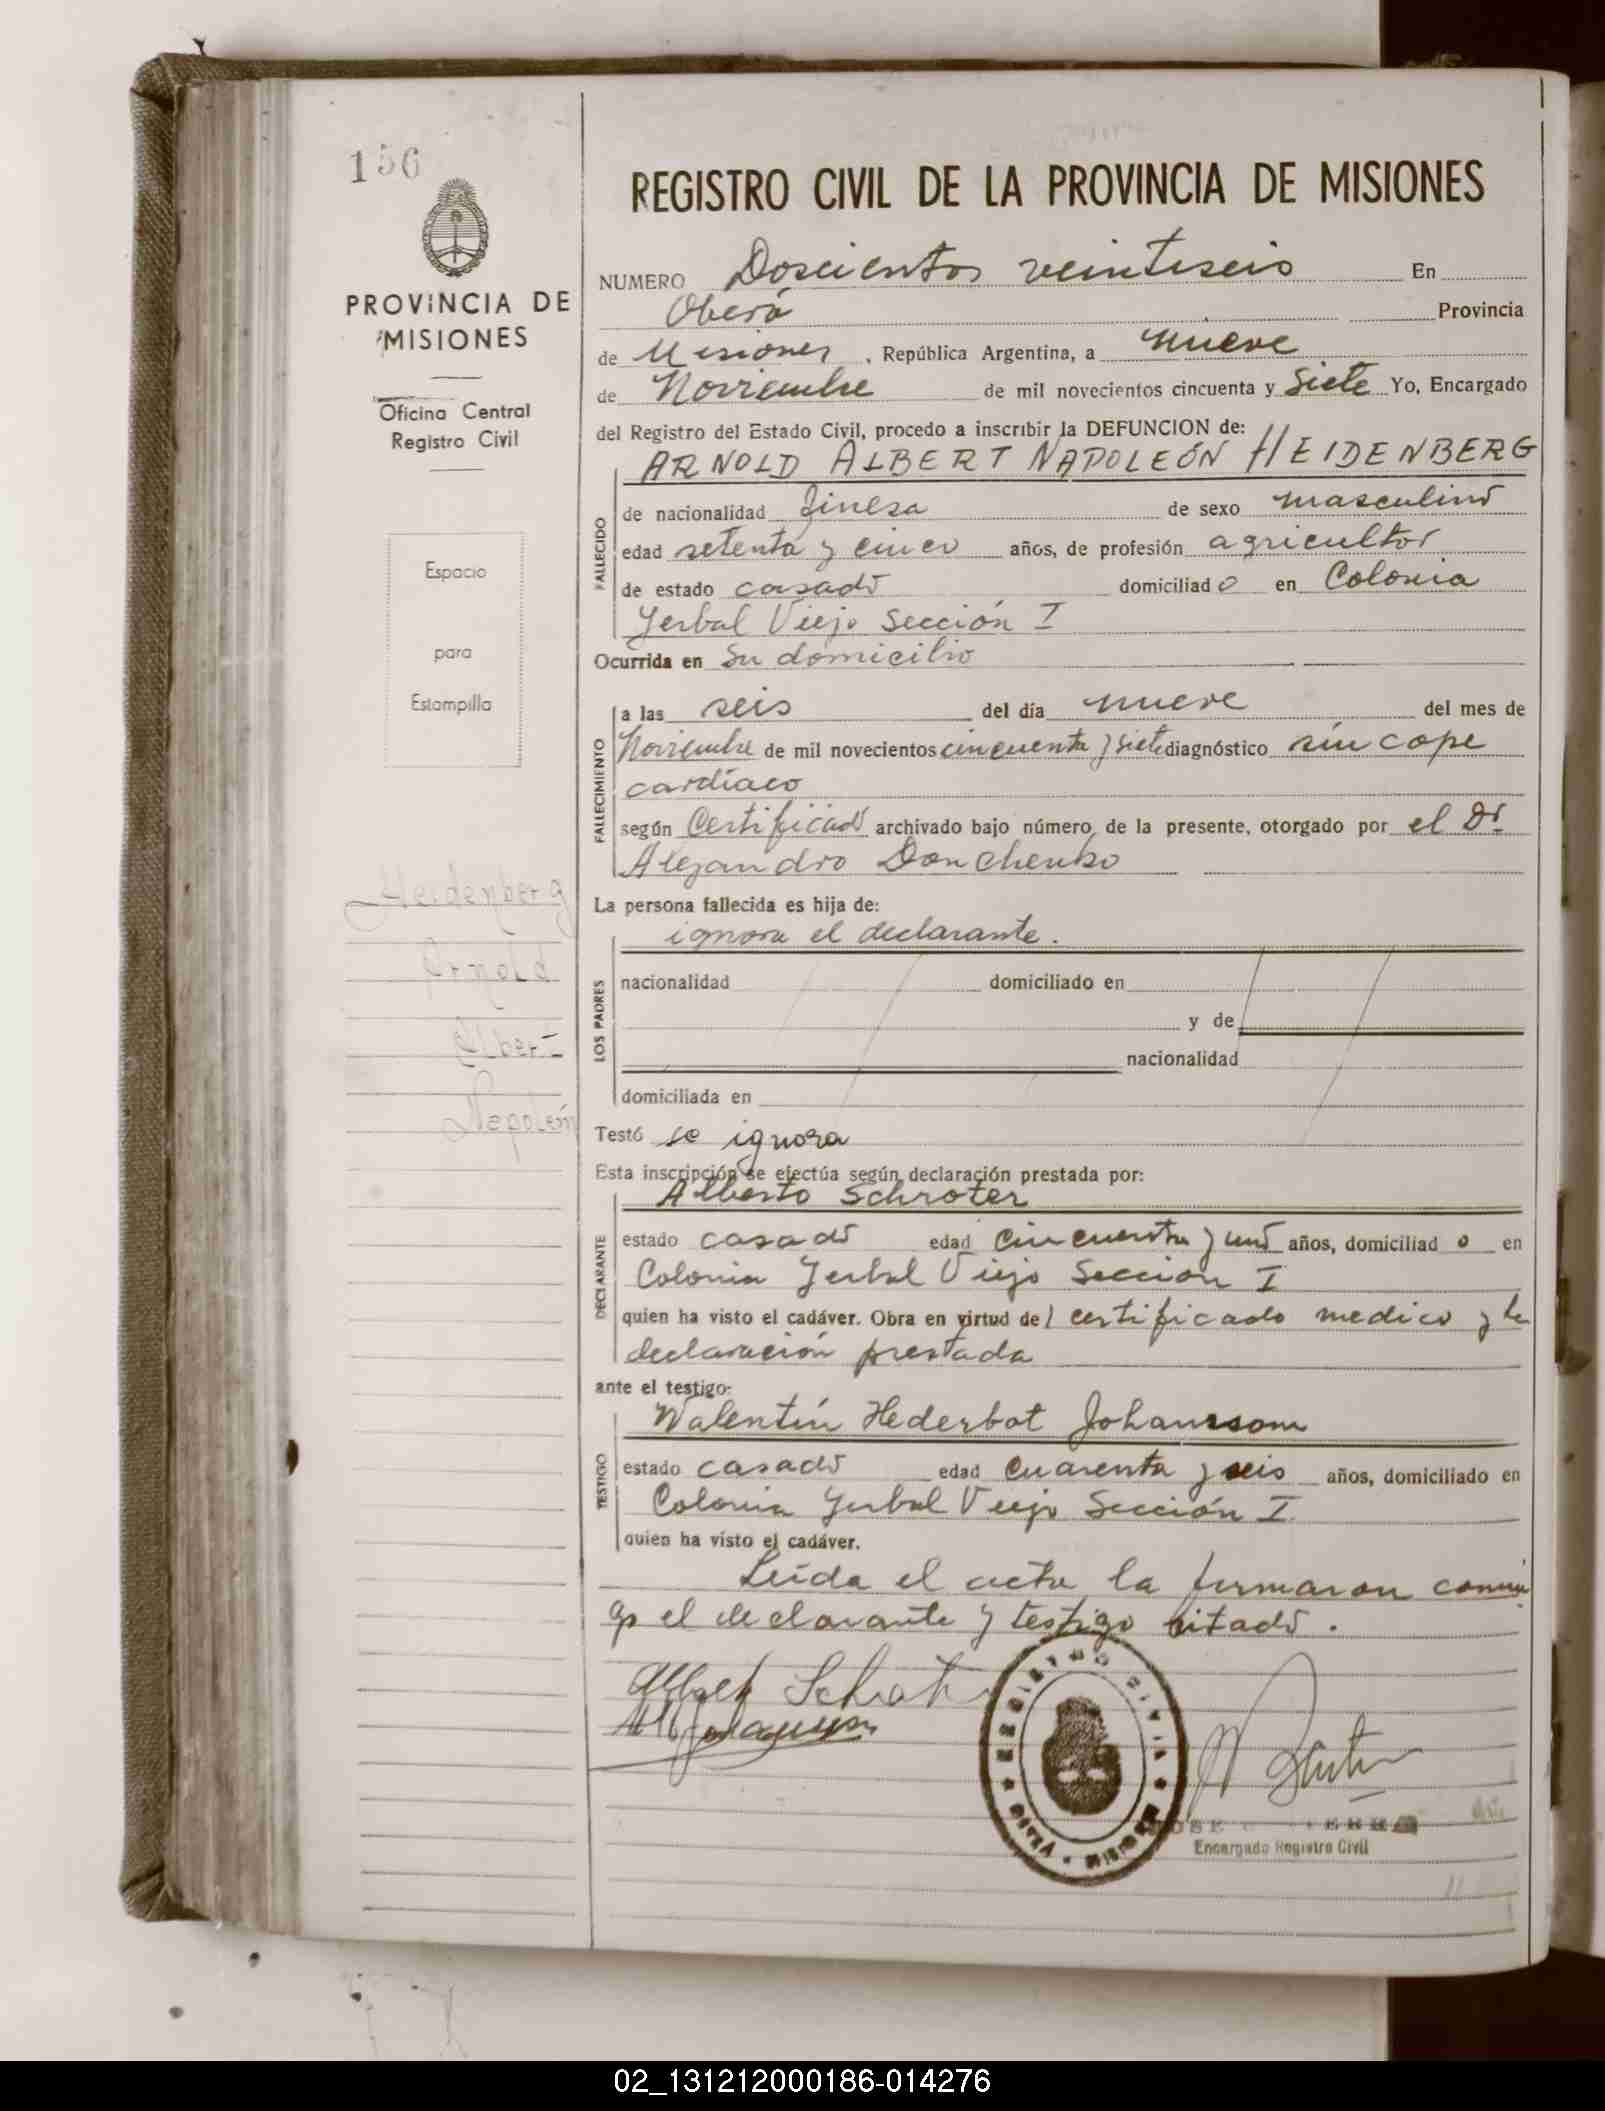 156
PROVINCIA DE
MISIONES
Oficina Central
Registro Civil
Espacio
para
Estampilla
Heidenberg
Arnold
Albert
Napoleón
REGISTRO CIVIL DE LA PROVINCIA DE MISIONES
NUMERO Doscientos veintiseis En
Oberá Provincia
de Misiones, República Argentina, a nueve
de Noviembre de mil novecientos cincuenta y siete Yo, Encargado
del Registro del Estado Civil, procedo a inscribir la DEFUNCION de:
ARNOLD ALBERT NAPOLEÓN HEIDENBERG
FALLECIDO
de nacionalidad finesa de sexo masculino
edad setenta y cinco años, de profesión agricultor
de estado casado domiciliado en Colonia
Yerbal Viejo Sección I
Ocurrida en su domicilio
FALLECIMIENTO
a las seis del día nueve del mes de
Noviembre de mil novecientos cincuenta y siete diagnóstico síncope
cardíaco
según Certificado archivado bajo número de la presente, otorgado por el Dr.
Alejandro Donchenko
La persona fallecida es hija de:
ignora el declarante.
LOS PADRES
nacionalidad domiciliado en
y de
nacionalidad
domiciliada en
Testó se ignora
Esta inscripción se efectúa según declaración prestada por:
Alberto Schroter
DECLARANTE
estado casado edad cincuenta y uno años, domiciliado en
Colonia Yerbal Viejo Sección I
quien ha visto el cadáver. Obra en virtud del certificado medico y la
declaración prestada
ante el testigo:
Walentín Hederbot Johansson
TESTIGO
estado casado edad cuarenta y seis años, domiciliado en
Colonia Yerbal Viejo Sección I
quien ha visto el cadáver.
Leída el acta la firmaron conmi
go el declarante y testigo citado.
REGISTRO CIVIL
OBERÁ MISIONES
Encargado Registro Civil
02_131212000186-014276